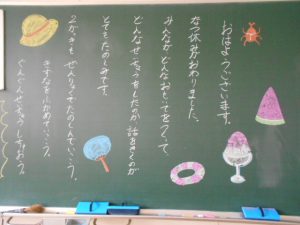 おはようございます。
なつ休みがおわりました。
みんながどんなおもいでをつくって、
どんなせいちょうをしたのか話をきくのが
とてもたのしみです。
2がっきも ぜんりょくでたのしんでいこう。
きずなをふかめていこう。
ぐんぐんせいちょうしちゃおう。